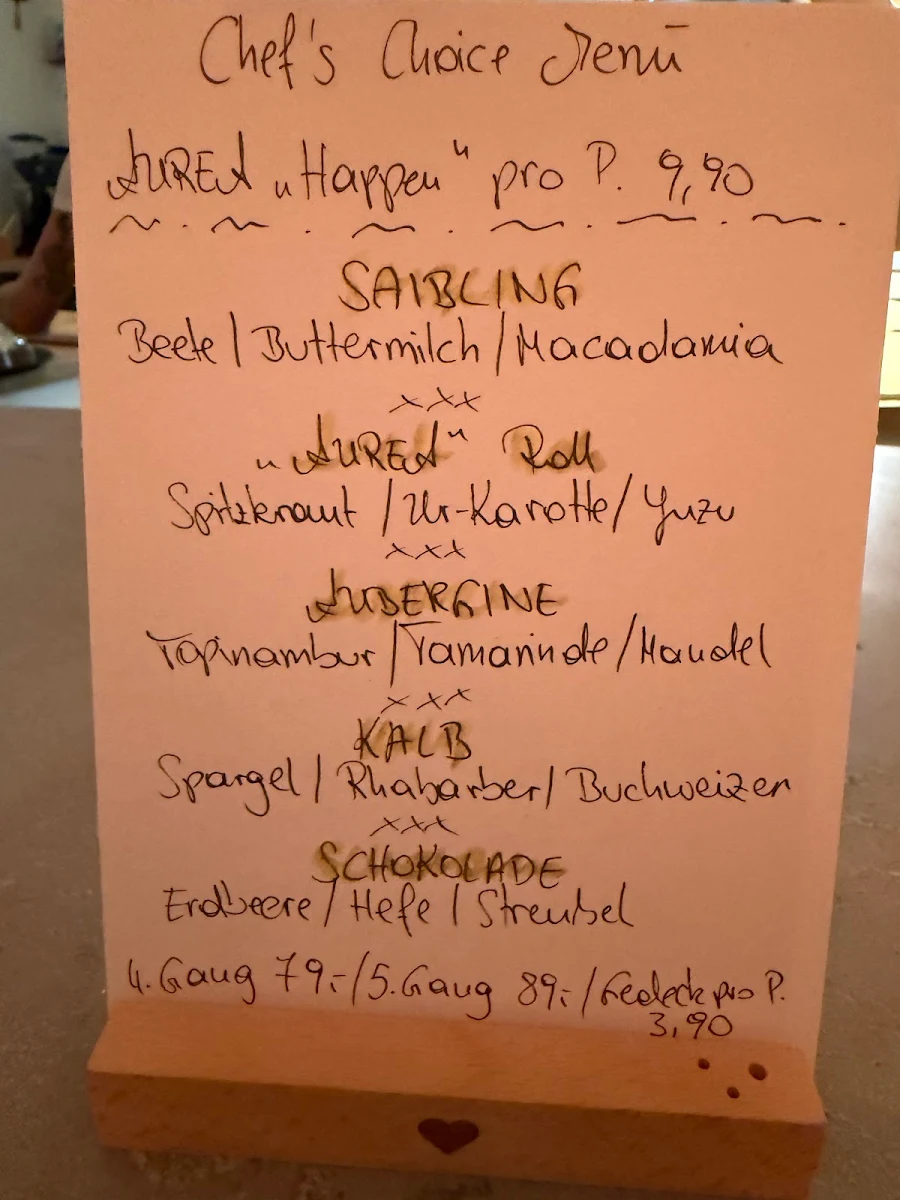 Chef's Choice Menü
AUREA „Happen" pro P. 9,90
SAIBLING
Beete / Buttermilch / Macadamia
xxx
„AUREA" Roll
Spitzkraut / Ur-Karotte / Yuzu
xxx
AUBERGINE
Topinambur / Tamarinde / Mandel
xxx
KALB
Spargel / Rhabarber / Buchweizen
xxx
SCHOKOLADE
Erdbeere / Hefe / Streusel
4. Gang 79,- / 5. Gang 89,- / Gedeck pro P.
3,90